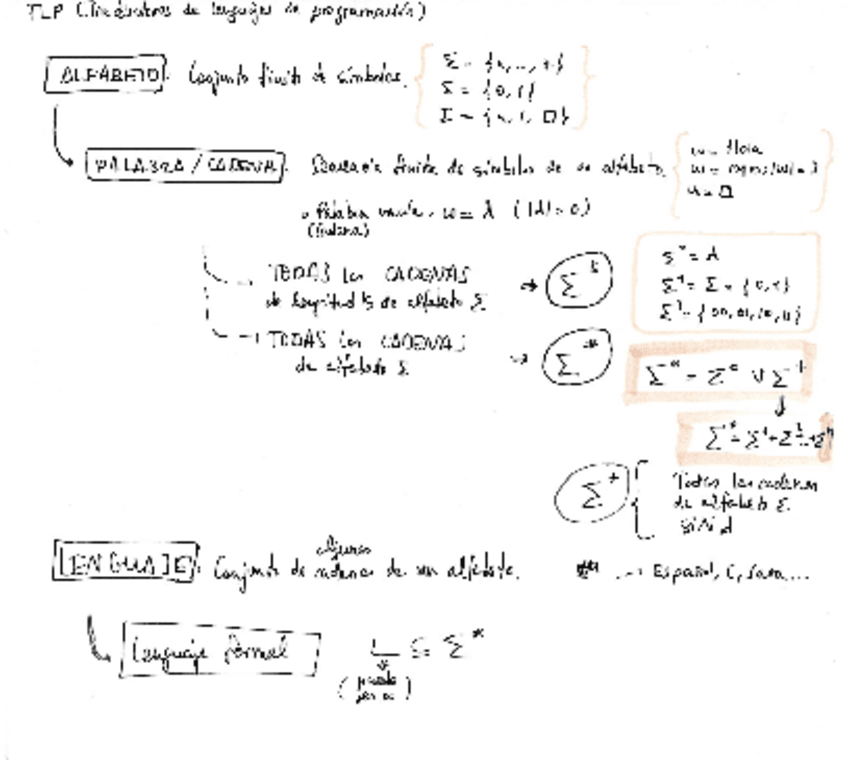 TLP (Traductores de lenguajes de programación)
ALFABETO. Conjunto finito de símbolos.
Σ = {0, 1}
PALABRA / CADENA. finita de símbolos de un alfabeto.
w = Hola
Palabra vacía. w = λ (|λ| = 0)
TODAS las CADENAS → Σ^k
de longitud k de alfabeto Σ
Σ° = λ
Σ¹ = Σ = {0, 1}
Σ² = {00, 01, 10, 11}
TODAS las CADENAS → Σ*
de alfabeto Σ
Σ* = Σ° ∪ Σ⁺
Σ⁺
Todas las cadenas
de alfabeto Σ
sin λ
LENGUAJE. Conjunto de algunas cadenas de un alfabeto. → Español, C, Java...
Lenguaje formal L ⊆ Σ*
(puede
ser ∞)